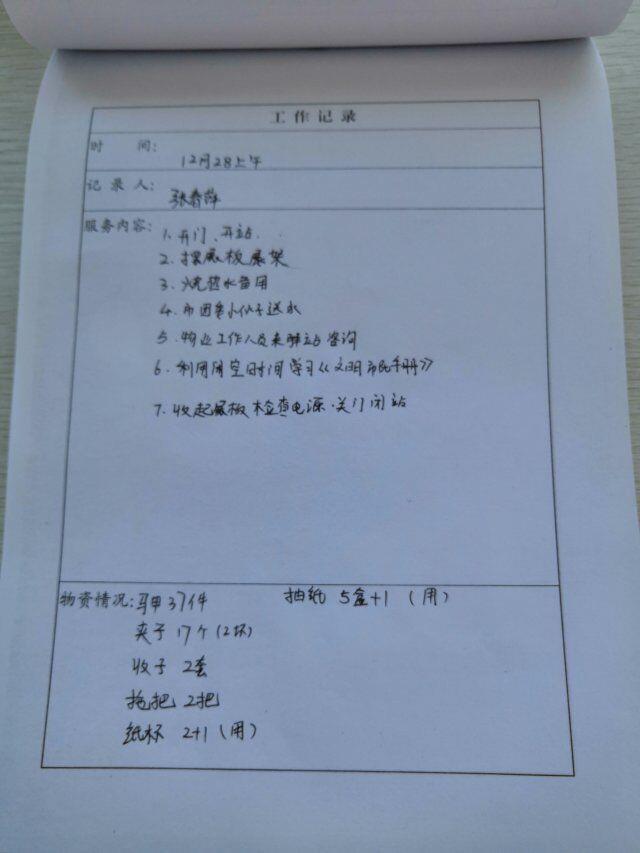 工作记录
时 间: 12月28上午
记录人: 张春萍
服务内容: 1. 开门、开站.
2. 摆展板展架
3. 烧热水备用
4. 市团委小伙子送水
5. 物业工作人员来驿站咨询
6. 利用闲空时间学习《文明市民手册》
7. 收起展板 检查电源.关门闭站
物资情况: 马甲37件 抽纸 5盒+1(用)
夹子 17个(2坏)
收子 2套
拖把 2把
纸杯 2+1(用)